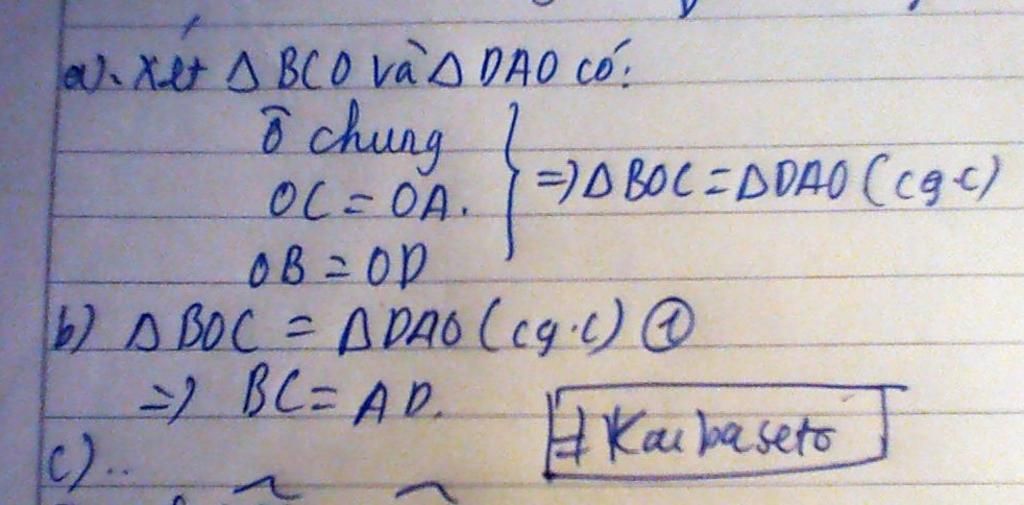 a). Xét Δ BCO và Δ DAO có:
Ô chung
OC = OA.
OB = OD
=> Δ BOC = Δ DAO (cg-c)
b) Δ BOC = Δ DAO (cg.c) ①
=> BC = AD.
#Kaibaseto
c)..